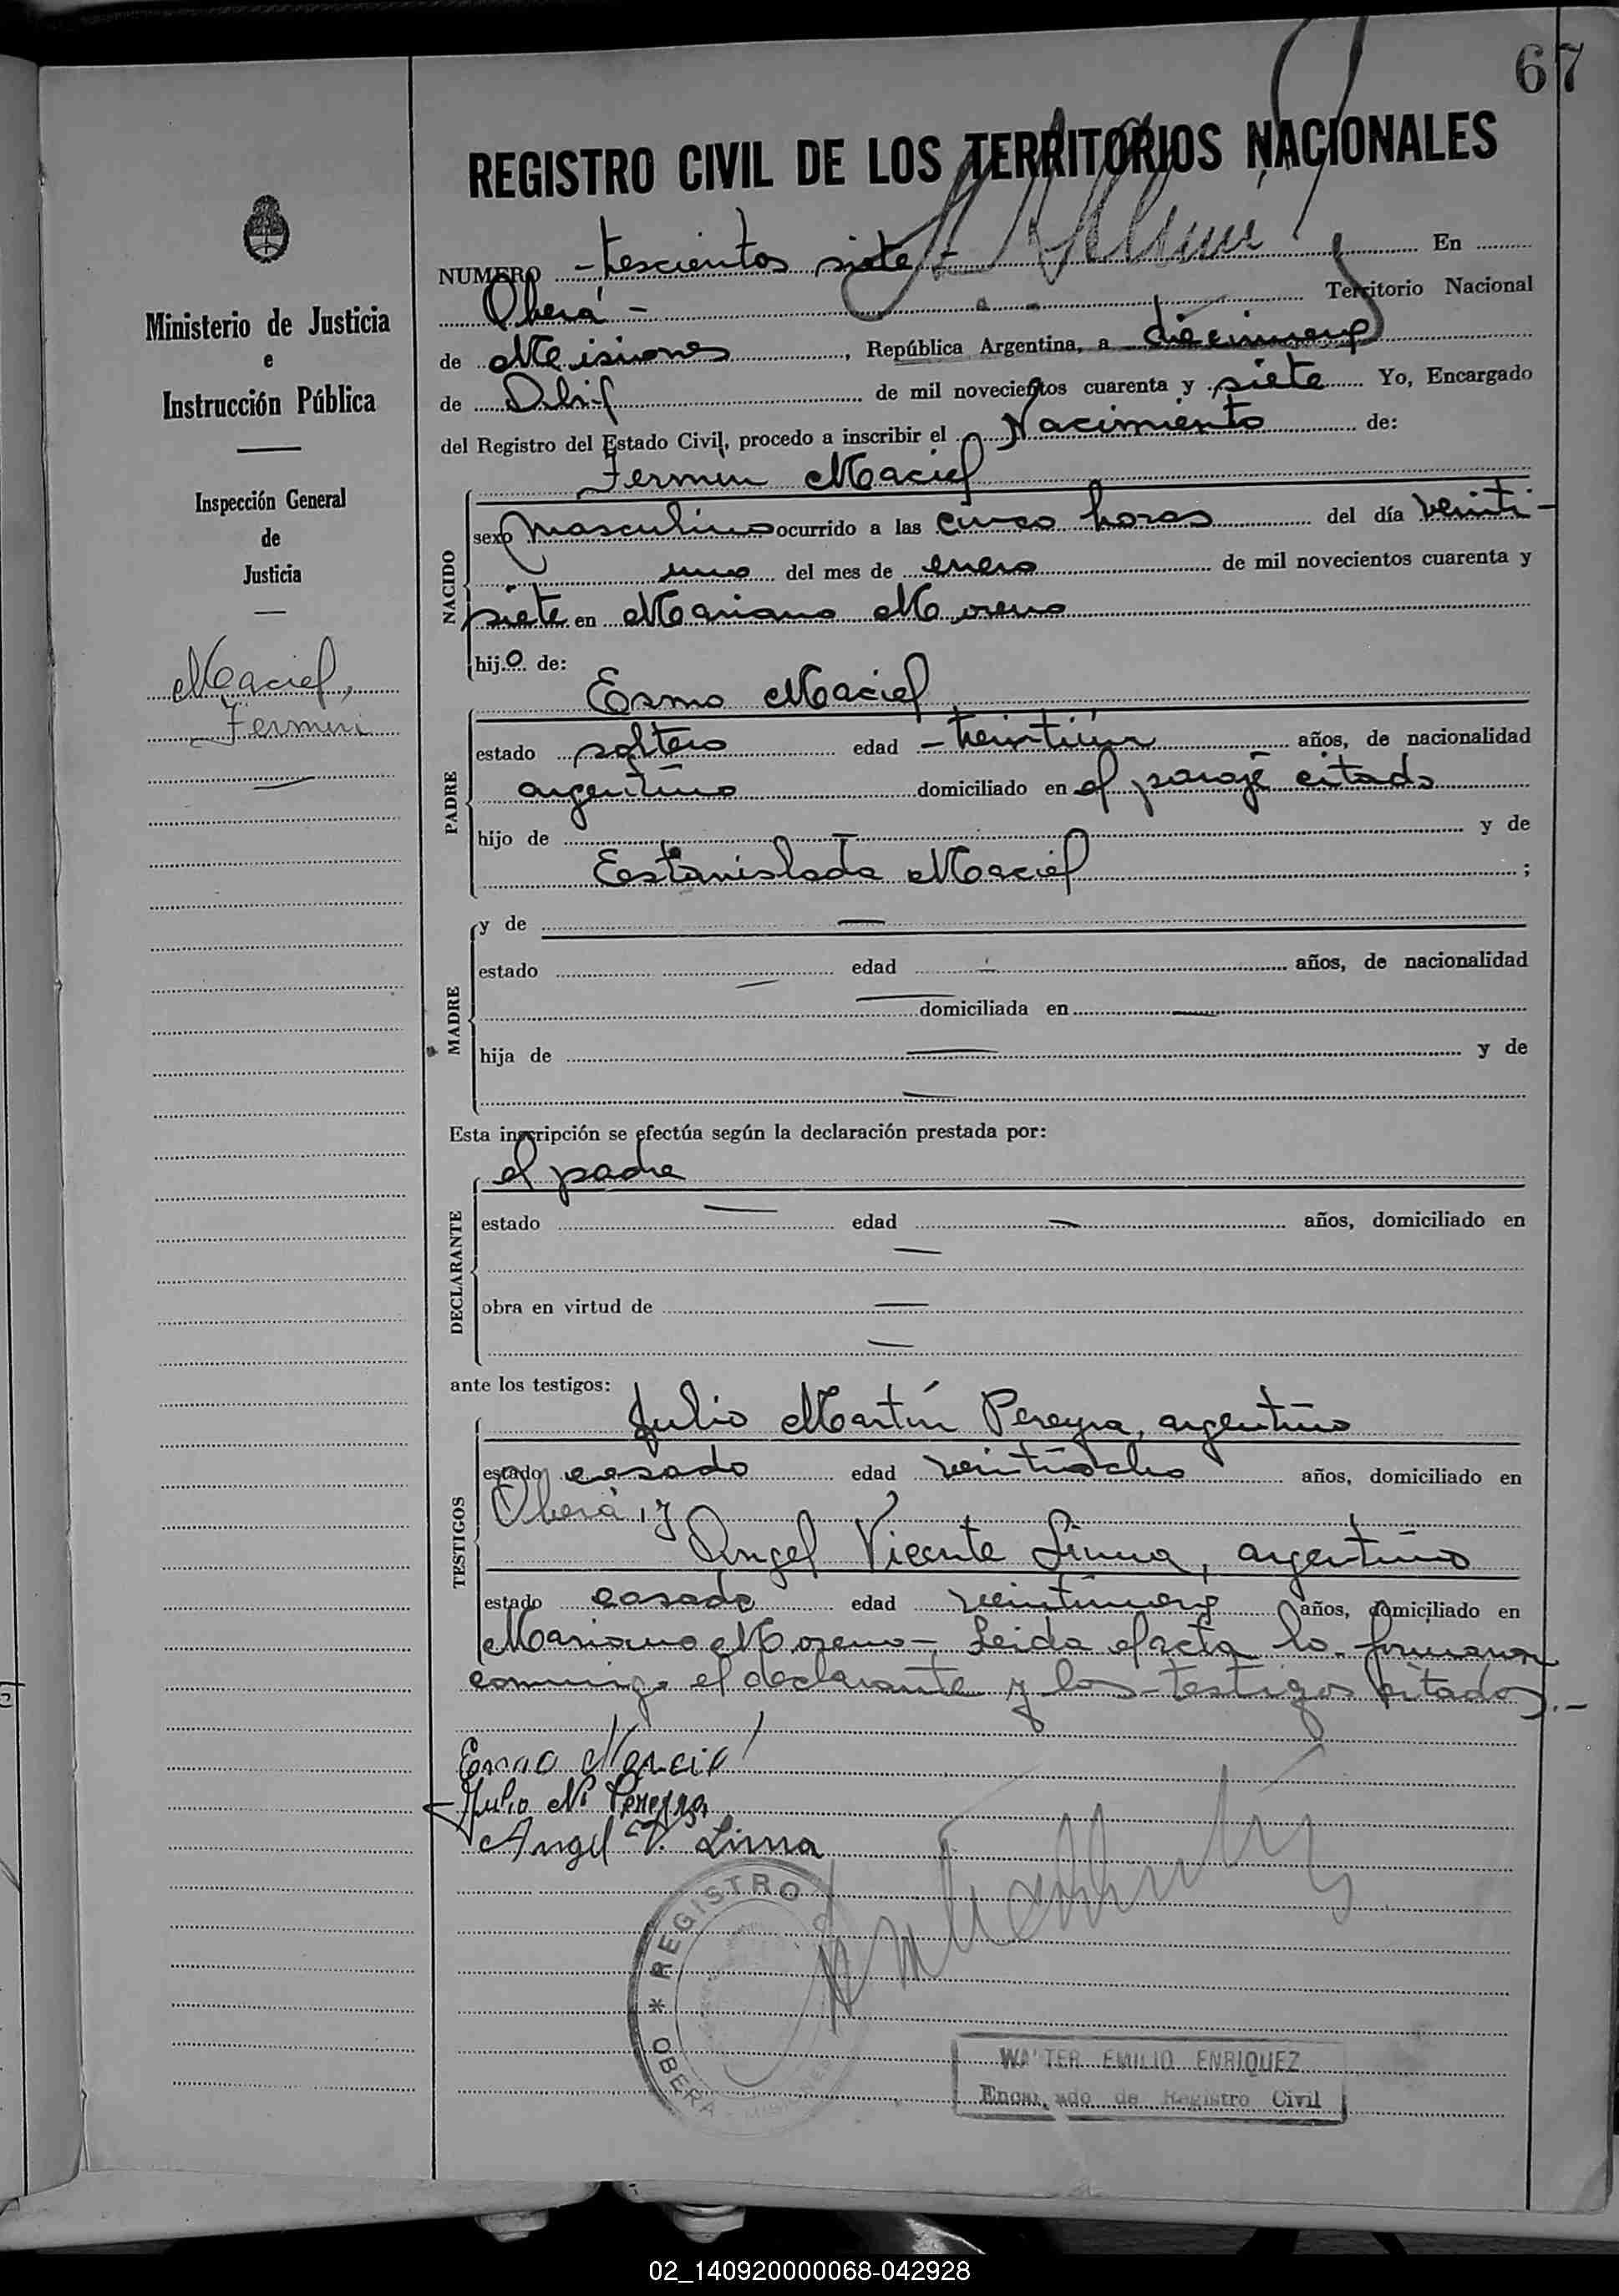 67
REGISTRO CIVIL DE LOS TERRITORIOS NACIONALES
Ministerio de Justicia
e
Instrucción Pública
Inspección General
de
Justicia
Maciel,
Fermin
NUMERO - trescientos siete - En
Oberá - Territorio Nacional
de Misiones, República Argentina, a diecinueve
de Abril de mil novecientos cuarenta y siete Yo, Encargado
del Registro del Estado Civil, procedo a inscribir el Nacimiento de:
Fermin Maciel
NACIDO
sexo masculino ocurrido a las cinco horas del día veinti-
uno del mes de enero de mil novecientos cuarenta y
siete en Mariano Moreno
hijo de:
PADRE
Eramo Maciel
estado soltero edad - treintiún años, de nacionalidad
argentino domiciliado en el paraje citado
hijo de — y de
Estanislada Maciel ;
MADRE
y de —
estado — edad — años, de nacionalidad
— domiciliada en —
hija de — y de
—
Esta inscripción se efectúa según la declaración prestada por:
DECLARANTE
el padre
estado — edad — años, domiciliado en
—
obra en virtud de —
—
ante los testigos:
TESTIGOS
Julio Martín Pereyra, argentino
estado casado edad veintiocho años, domiciliado en
Oberá, y
Angel Vicente Lima, argentino
estado casado edad veintinueve años, domiciliado en
Mariano Moreno - Leida el acta la firmaron
conmigo el declarante y los testigos citados.-
Eramo Maciel
Julio M. Pereyra
Angel V. Lima
REGISTRO
* OBERA - MISIONES
WALTER EMILIO ENRIQUEZ
Encargado de Registro Civil
02_140920000068-042928